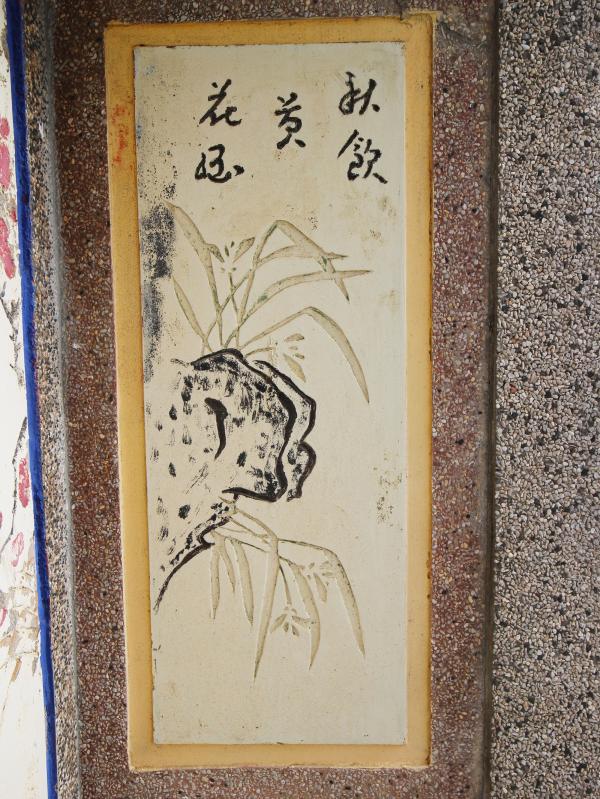 秋飲
黃
花酒